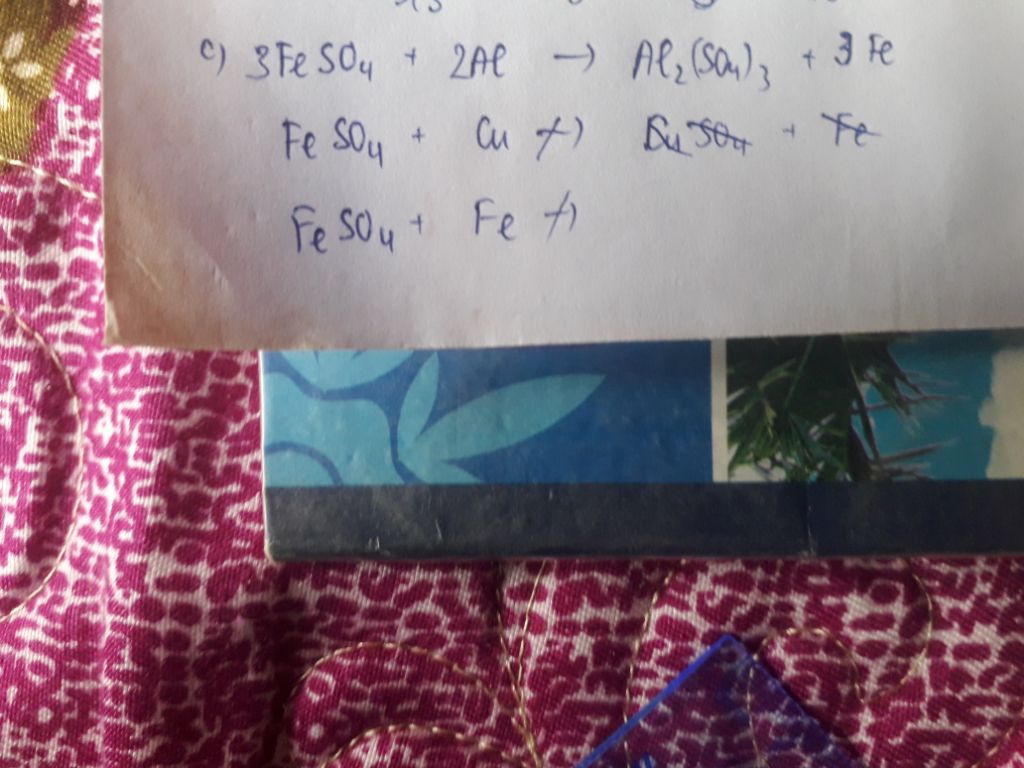 c) 3FeSO₄ + 2Al → Al₂(SO₄)₃ + 3Fe
FeSO₄ + Cu ↛ CuSO₄ + Fe
FeSO₄ + Fe ↛